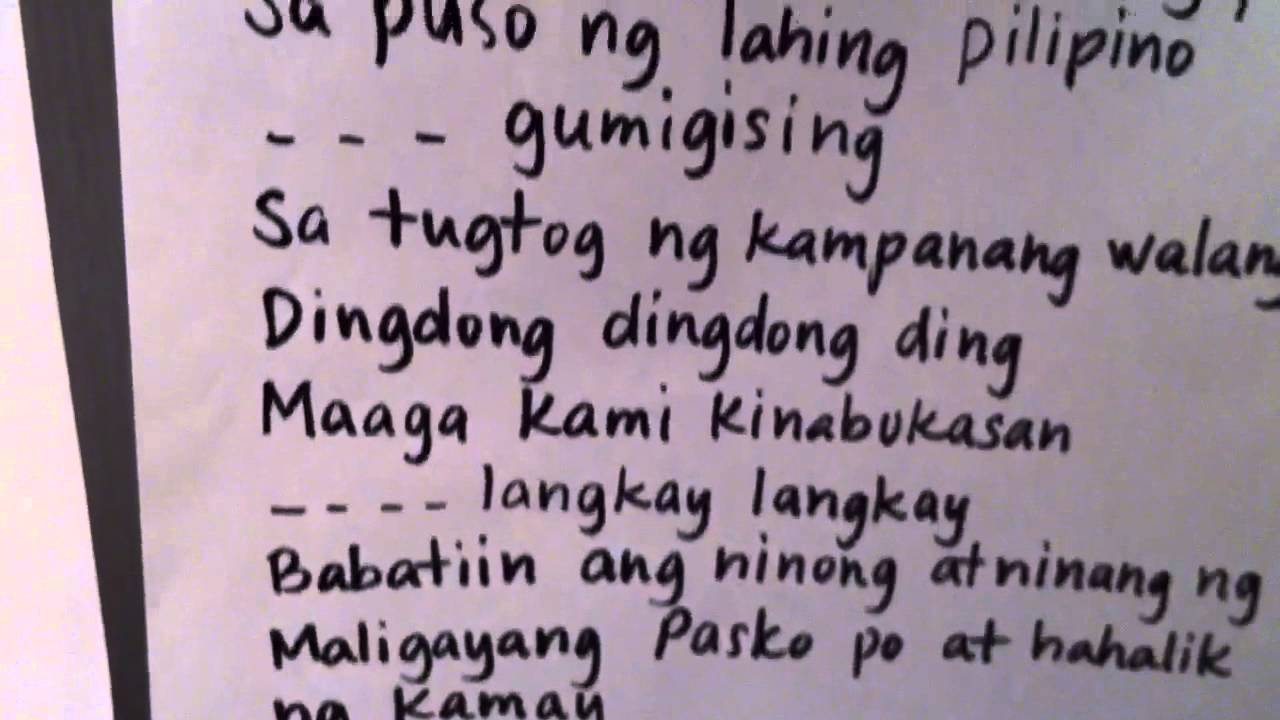 Sa puso ng lahing pilipino
- - - gumigising
Sa tugtog ng kampanang walang
Dingdong dingdong ding
Maaga kami kinabukasan
- - - - langkay langkay
Babatiin ang ninong at ninang ng
Maligayang Pasko po at hahalik
ng kamay